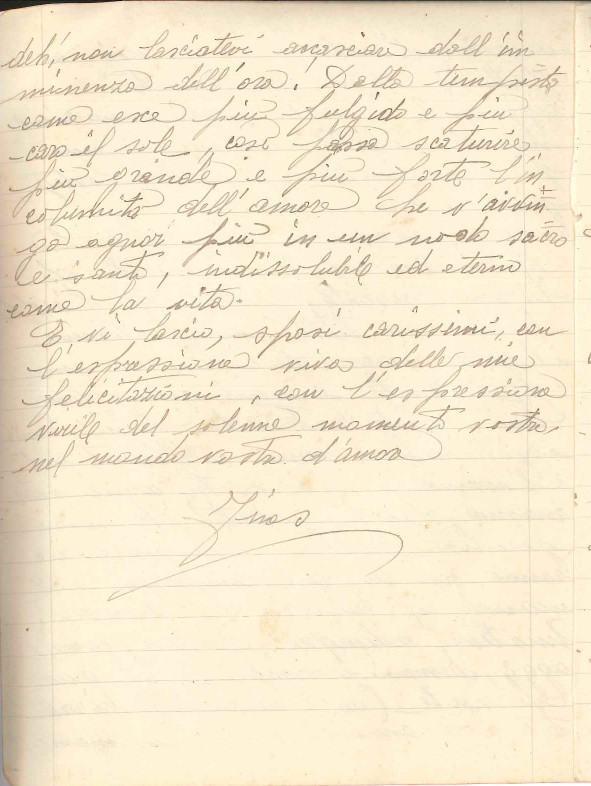 deh, non lasciatevi angosciare dall'im
minenza dell'ora! Dalla tempesta
come esce più fulgido e più
caro il sole, così possa scaturire
più grande e più forte l'in
columità dell'amore che v'avvin-
ga ognor più in un nodo sacro
e santo, indissolubile ed eterno
come la vita.
E vi lascio, sposi carissimi, con
l'espressione viva delle mie
felicitazioni, con l'espressione
virile del solenne momento vostro,
nel mondo vostro d'amore